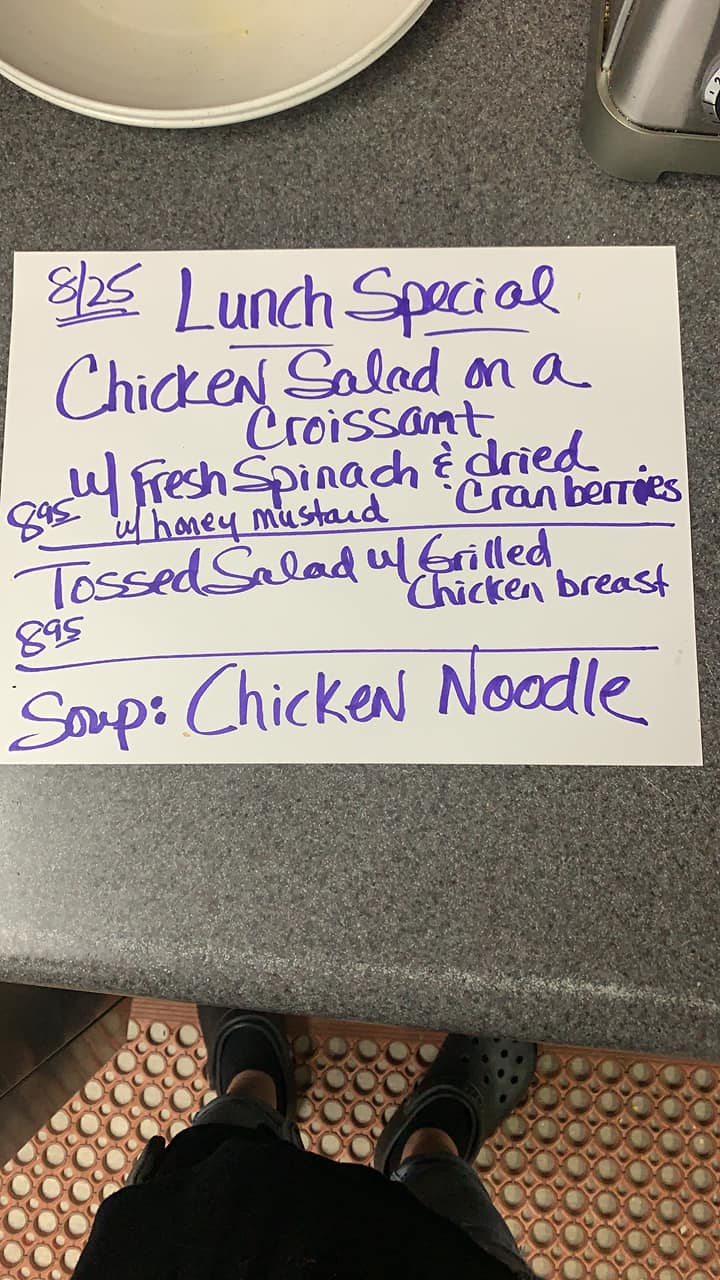 8/25 Lunch Special
Chicken Salad on a
Croissant
w/ Fresh Spinach & dried
Cranberries
8.95 w/ honey mustard
Tossed Salad w/ Grilled
Chicken breast
8.95
Soup: Chicken Noodle